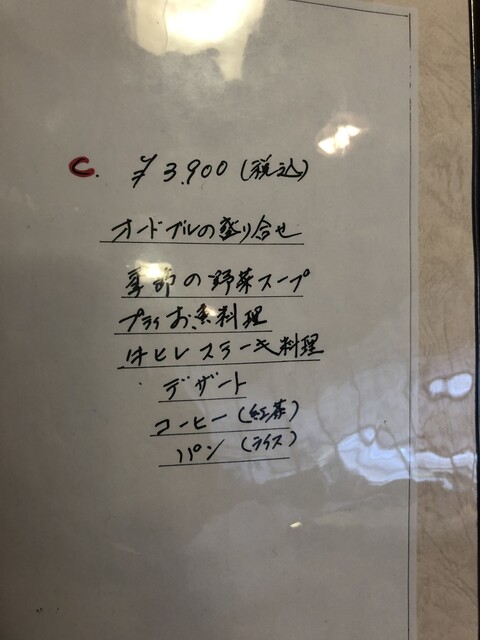 C. ¥3,900 (税込)
オードブルの盛り合せ
季節の野菜スープ
プライお魚料理
牛ヒレステーキ料理
デザート
コーヒー(紅茶)
パン(ライス)